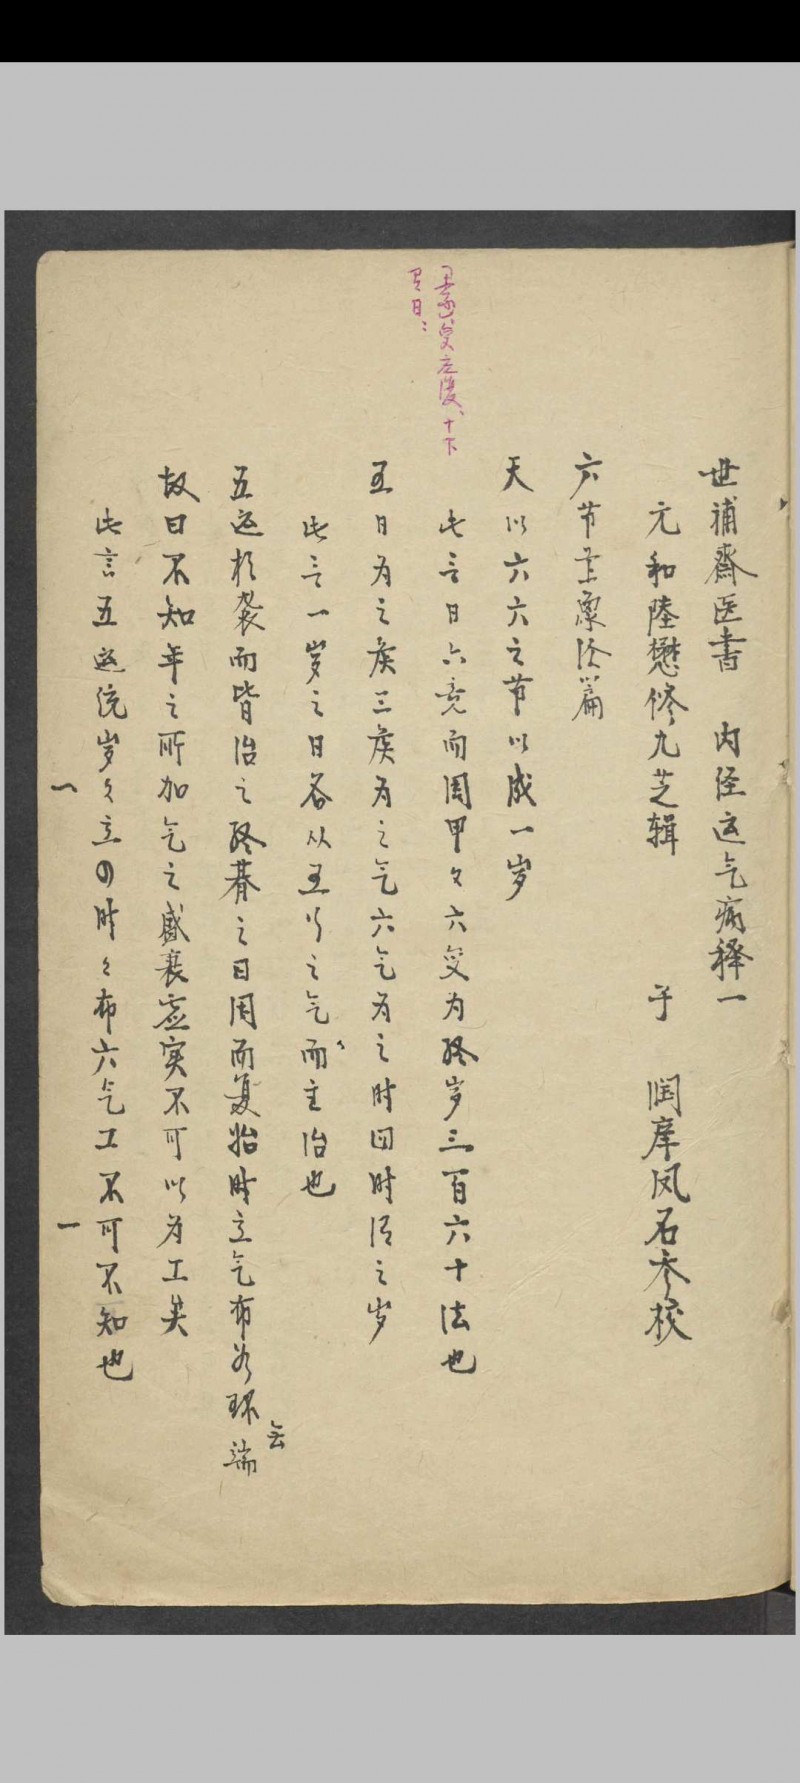 世補斎医書 内径运气病释一
元和陸懋修九芝辑 子 润庠凤石参校
六节藏禀论篇
天以六六之节以成一岁
此言日六竟而周甲々六变为终岁三百六十法也
五日为之候三候为之气六气为之时四时谓之岁
此言一岁之日各从五行之气而主治也
五运相袭而皆治之终朞之日周而复始时立气布如环
无
端
故曰不知年之所加气之盛衰虚实不可以为工矣
此言五运统岁々立四时々布六气工不可不知也